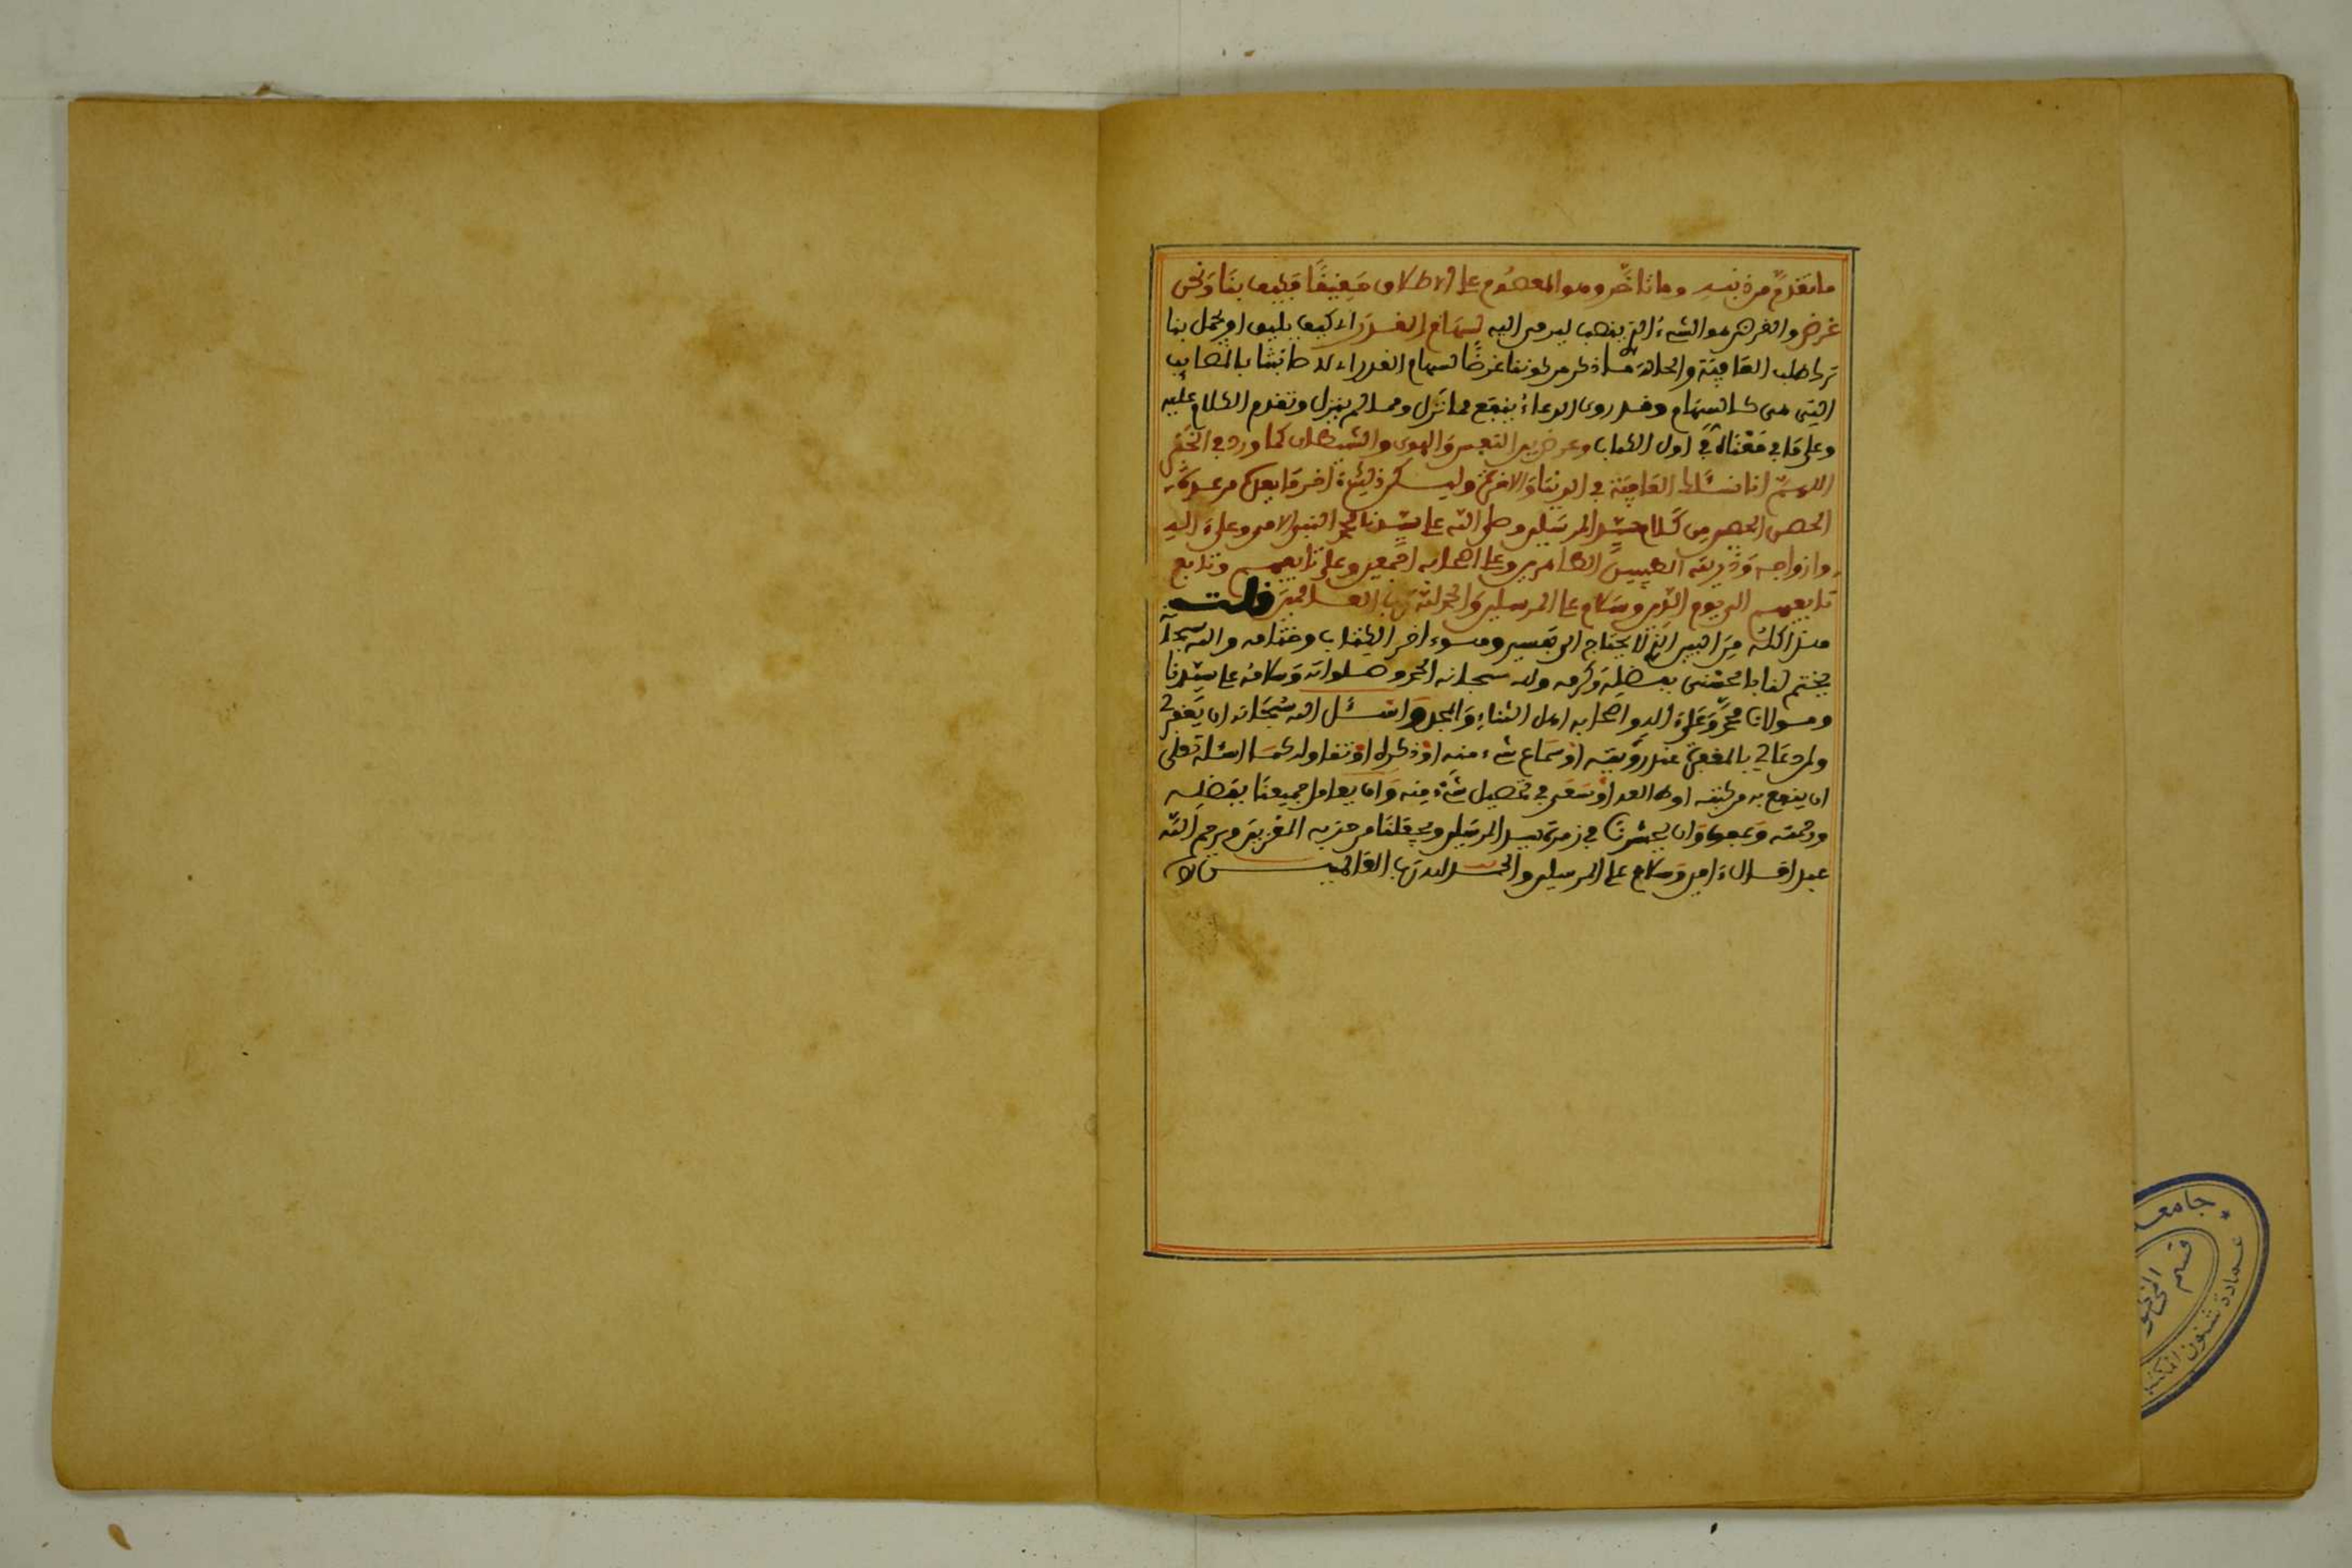 ما تقدم من ذنبه وما تأخر وهو المعصوم على الاطلاق حقيقة فكيف بنا ونحن
غرض والغرض هو الشيء الذي ينصب ليرمى اليه لسهام القدر اي كيف يليق او يجمل بنا
ترك طلب العافية والحالة ما ذكر من كوننا غرضا لسهام القدر اي للاصابتنا بالمصايب
التي هي كالسهام وقد روي الدعاء ينفع مما نزل ومما لم ينزل وتقدم الكلام عليه
وعلى ما في معناه في اول الكتاب وغرض بين النفس والهوى والشيطان كما ورد في الخبر
اللهم انا نسئلك العافية في الدنيا والاخرة وليكن ذلك آخر ما من عدة
الحصن الحصين من كلام سيد المرسلين وصلى الله على سيدنا محمد النبي الامي وعلى اله
وازواجه وذريته الطيبين الطاهرين وعلى اصحابه اجمعين وعلى تابعيهم وتابع
تابعيهم الى يوم الدين وسلام على المرسلين والحمد لله رب العالمين قلت
هذا كله من البين الذي لا يحتاج الى تفسير وهو اخر الكتاب وختامه والله سبحانه
يختم لنا بالحسنى بفضله وكرمه وله سبحانه الحمد وصلواته وسلامه على سيدنا
ومولانا محمد وعلى اله واصحابه اهل الثناء والمجد واسئل الله سبحانه ان يغفر لي
ولمن دعا لي بالمغفرة عند رؤيته او سماع شيء منه او ذكره او تناوله كما اسئله تعلى
ان ينفع به من كتبه او طالعه او سعى في تحصيل شيء منه وان يعامل جميعنا بفضله
ورحمته وعفوه وان يحشرنا في زمرة سيد المرسلين ويجعلنا من حزبه المقربين ويرحم الله
عبدا قال اامين وسلام على المرسلين والحمد لله رب العالمين
جامعـ
قسم
المخطو
عمادة شئون المكتبـ